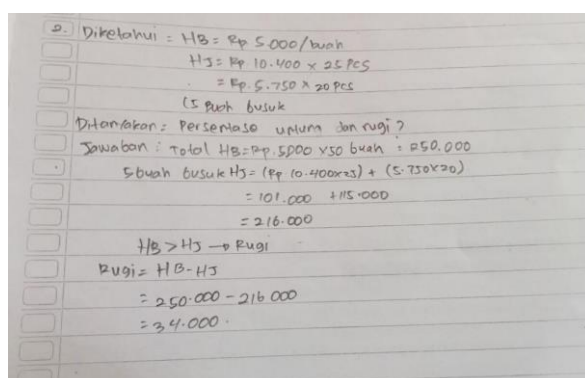 2. Diketahui : HB = Rp 5.000/buah
HJ = Rp. 10.400 x 25 pcs
= Rp. 5.750 x 20 pcs
(5 buah busuk
Ditanyakan : Persentase untung dan rugi ?
Jawaban : Total HB = Rp. 5000 x 50 buah = 250.000
5 buah busuk HJ = (Rp 10.400x25) + (5.750x20)
= 101.000 + 115.000
= 216.000
HB > HJ → Rugi
Rugi = HB - HJ
= 250.000 - 216 000
= 34.000.